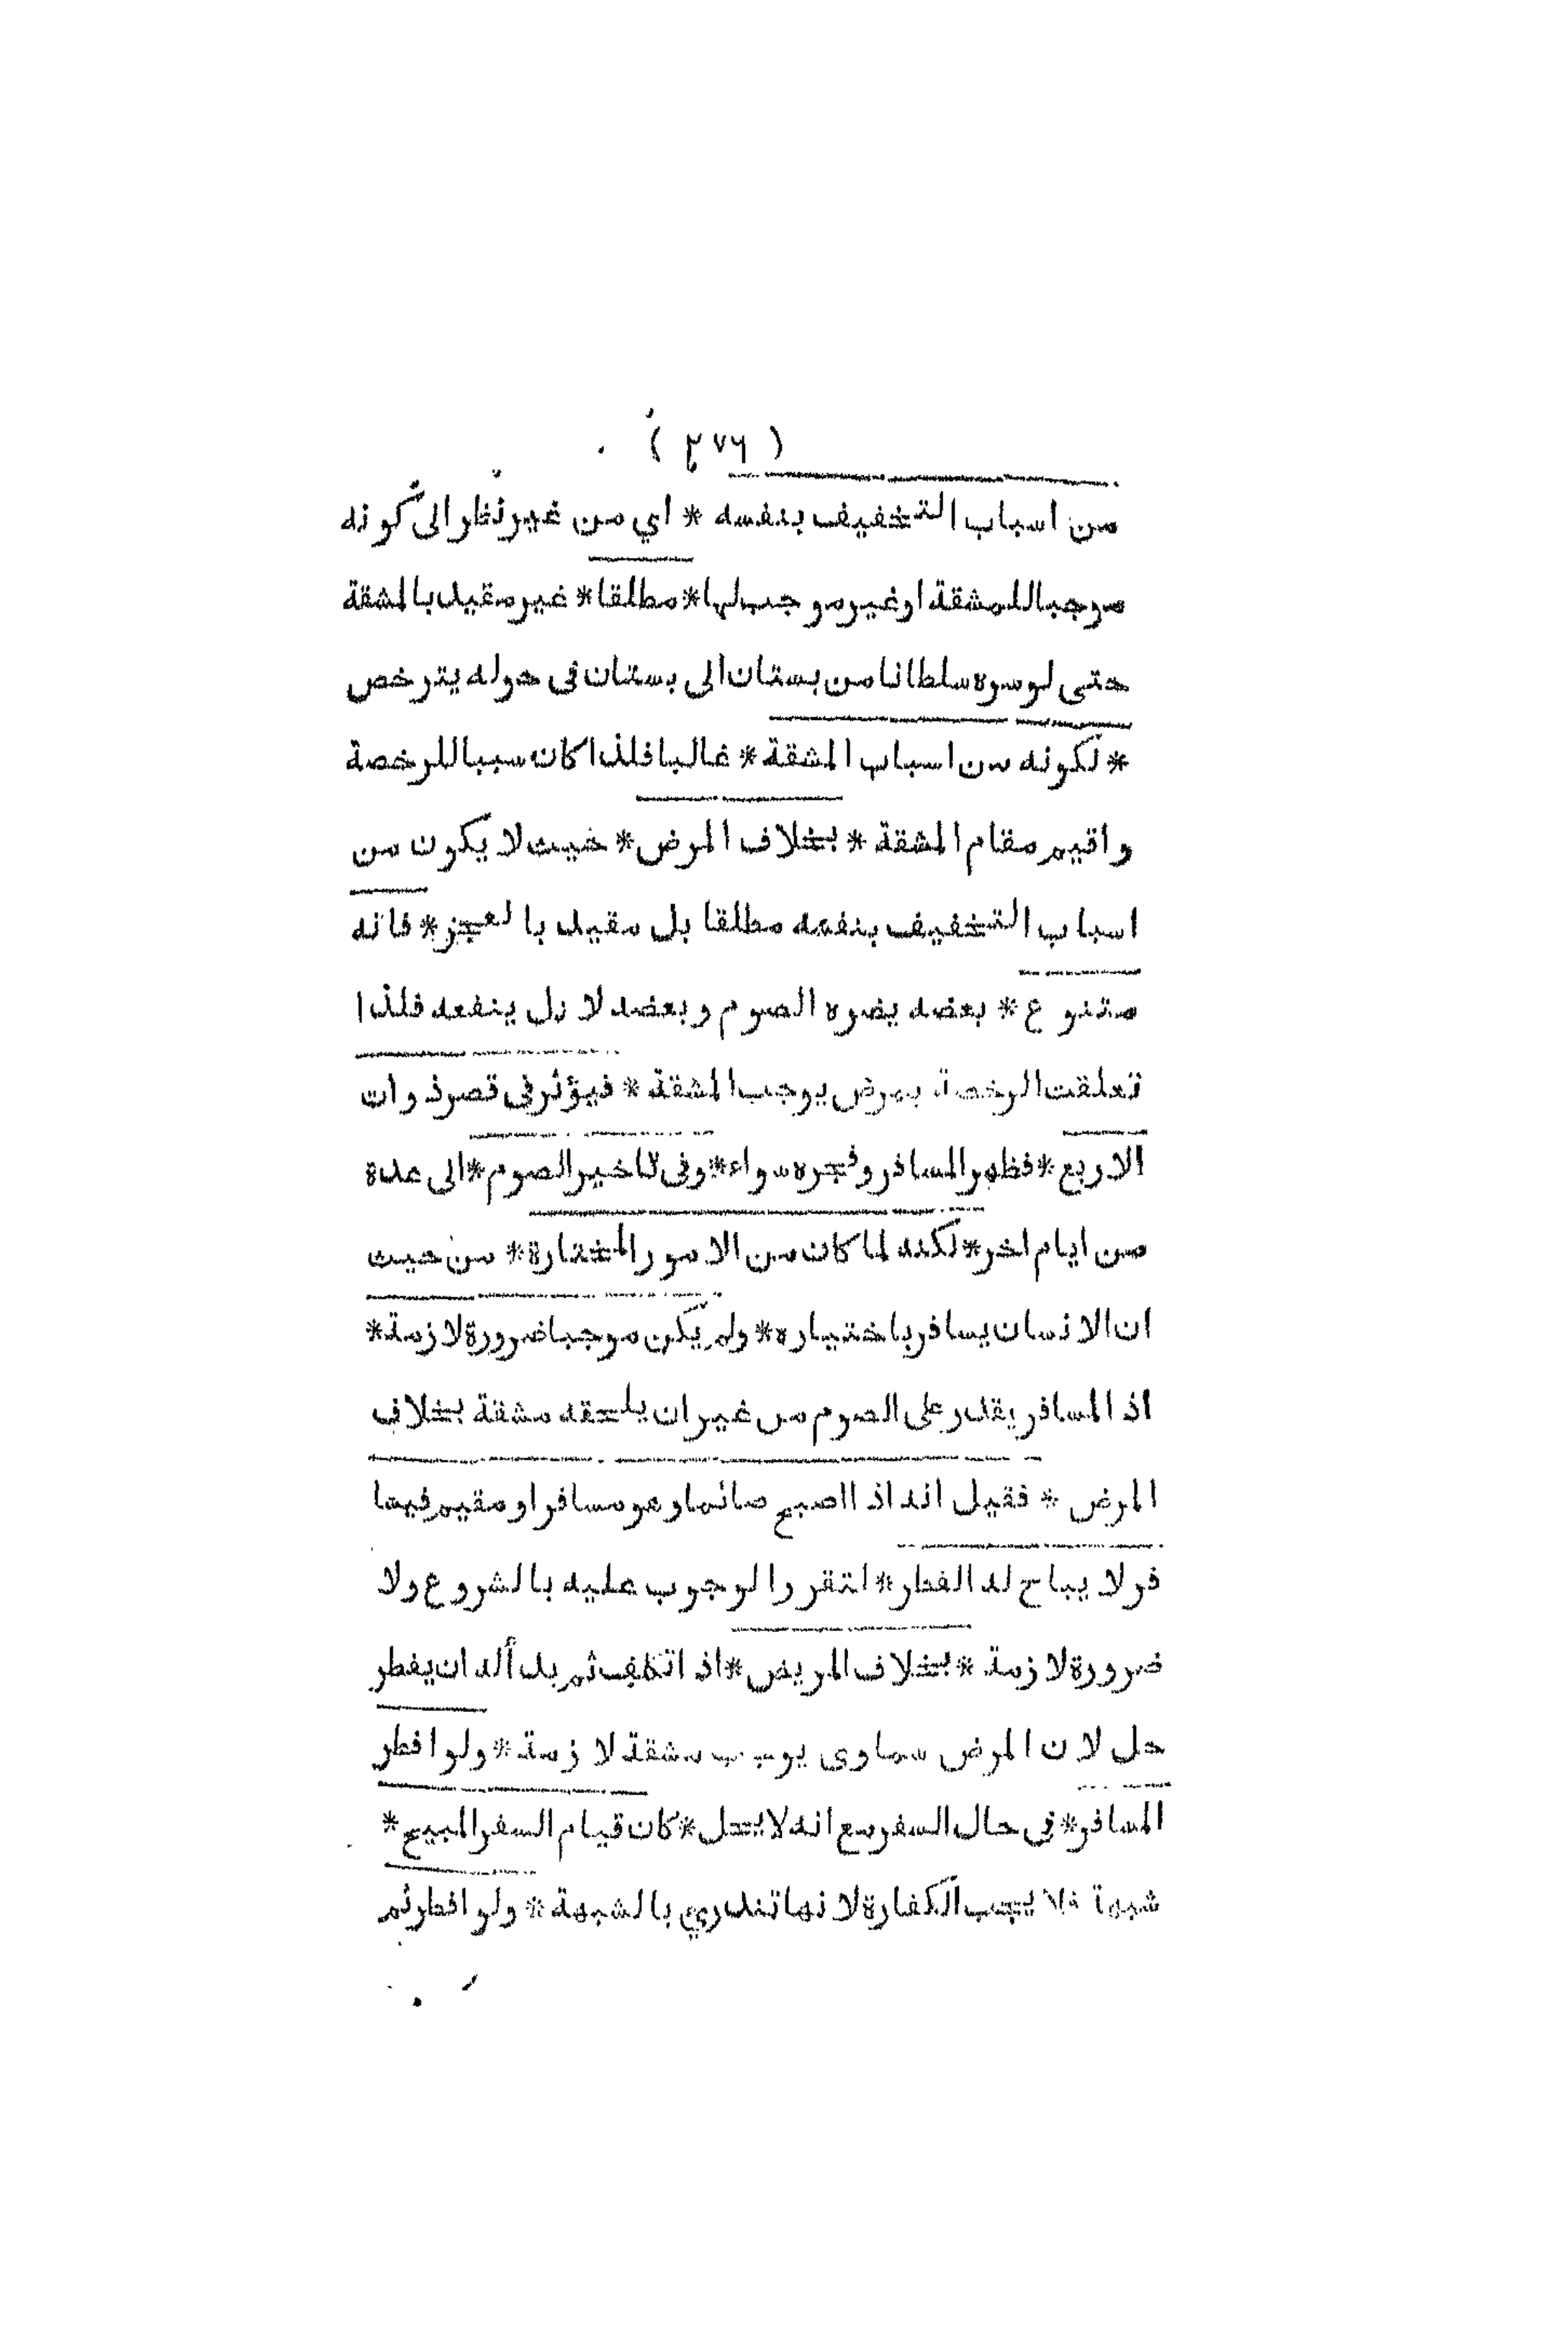 ( ٣٧٦ )
من اسباب التخفيف بنفسه * اي من غير نظر الى كونه
موجبا للمشقة او غير موجب لها * مطلقا * غير مقيد بالمشقة
حتى لو سره سلطانا من بستان الى بستان فى حوله يترخص
* لكونه من اسباب المشقة * غالبا فلذا كان سببا للرخصة
و اقيم مقام المشقة * بخلاف المرض * حيث لا يكون من
اسباب التخفيف بنفسه مطلقا بل مقيد بالعجز * فانه
متنوع * بعضه يضره الصوم و بعضه لا بل ينفعه فلذا
تعلقت الرخصة بمرض يوجب المشقة * فيؤثر فى قصر ذوات
الاربع * فظهر المسافر و فجره سواء * و فى تاخير الصوم * الى عدة
من ايام اخر * لكنه لما كان من الامور المختارة * من حيث
ان الانسان يسافر باختياره * ولم يكن موجبا ضرورة لازمة *
اذ المسافر يقدر على الصوم من غير ان يلحقه مشقة بخلاف
المرض * فقيل انه اذا اصبح صائما و هو مسافر او مقيم فيما
فر لا يباح له الفطر * لتقرر الوجوب عليه بالشروع ولا
ضرورة لازمة * بخلاف المريض * اذ ثم بدأ له ان يفطر
حل لان المرض سماوى يوجب مشقة لازمة * ولو افطر
المسافر * فى حال السفر مع انه لا يحل * كان قيام السفر المبيح *
شبهة فلا يجب الكفارة لانها تندري بالشبهة * ولو افطر ثم